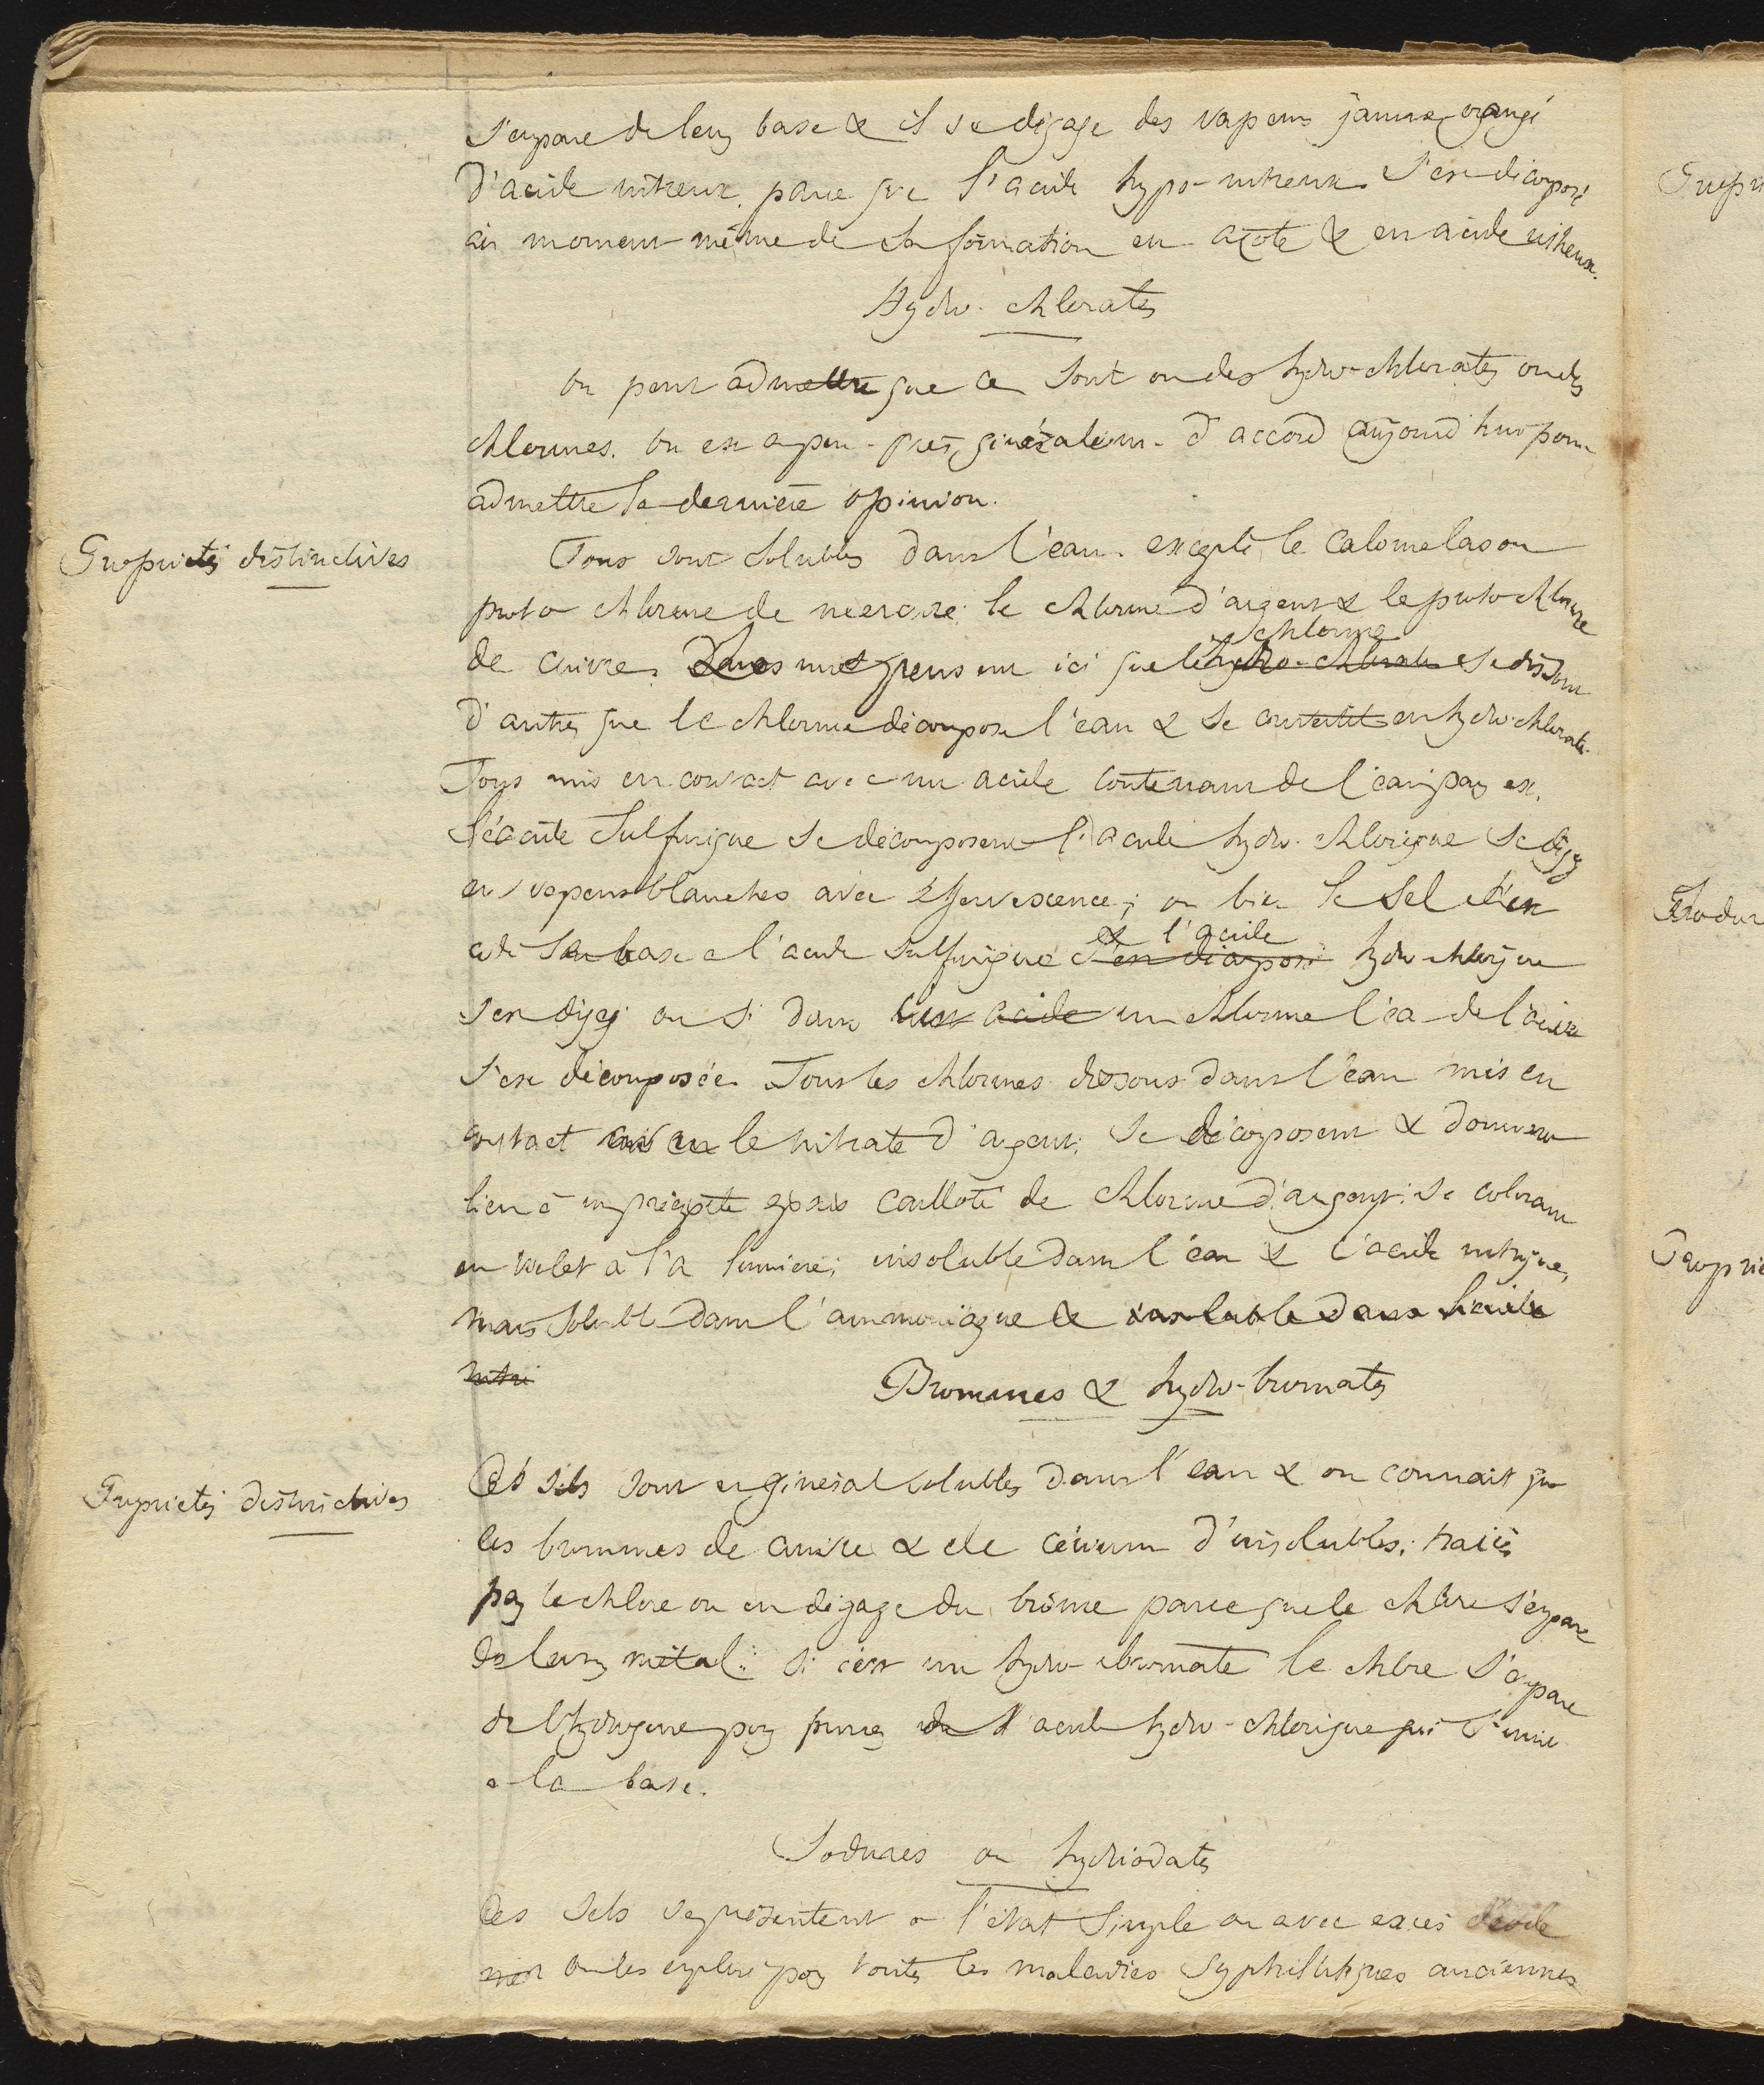 s'empare de leurs base & il se dégage des vapeurs jaunes orangé
d'acide nitreux, parce que l'acide hypo-nitreux s'est décomposé
au moment même de sa formation en azote & en acide nitreux.
Hydro-chlorates
On peut admettre que ce sont ou des hydro-chlorates ou des
chlorures. On est à peu-près généralem. d'accord aujourd'hui pour
admettre la dernière opinion.
Propriétés distinctives
Tous sont solubles dans l'eau excepté le calomelas ou
proto chlorure de mercure, le chlorure d'argent & le proto-chlorure
de cuivre. Les uns pensent ici que le hydro-chlorate chlorure se dissout
d'autres que le chlorure décompose l'eau & se convertit en hydro-chlorate.
Tous mis en contact avec un acide contenant de l'eau, par ex.
l'acide sulfurique se décomposent l'acide hydro-chlorique se dégage
en vapeurs blanches avec effervescence; ou bien le sel
cède sa base à l'acide sulfurique s'est décomposé & l'acide hydro-chlorique
s'en dégage ou si dans un acide un chlorure l'eau de l'acide
s'est décomposée. Tous les chlorures dissous dans l'eau mis en
contact avec le nitrate d'argent, se décomposent & donnent
lieu à un précipité épais cailloté de chlorure d'argent, se colorant
en violet à la lumière, insoluble dans l'eau & l'acide nitrique,
mais soluble dans l'ammoniaque & insoluble dans l'acide
nitri
Bromures & hydro-bromates
Propriétés distinctives
Ces sels sont en général solubles dans l'eau & on connait que
les bromures de cuivre & de cérium d'insolubles, traités
par le chlore on en dégage du brôme parce que le chlore s'empare
de leurs métal; si c'est un hydro-bromate le chlore s'empare
de l'hydrogène pour former de l'acide hydro-chlorique qui s'unit
à la base.
Iodures ou hydriodates
Ces sels se présentent à l'état simple ou avec excès d'iode
on les emploie pour toutes les maladies syphilitiques anciennes